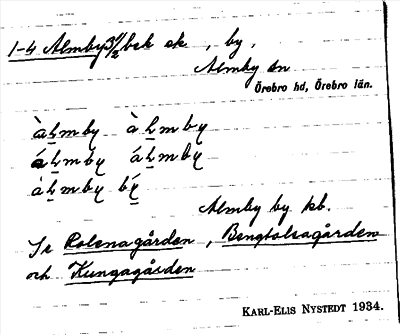 1-4 Almby 3 1/2 bek ek , by.
Almby sn
Örebro hd, Örebro län.
àḻmby à ḻmby
áḻmby áḻmby
àḻmby bý
Almby by kb.
Se Rolenagården , Bengtolsagården
och Kungagården
KARL-ELIS NYSTEDT 1934.